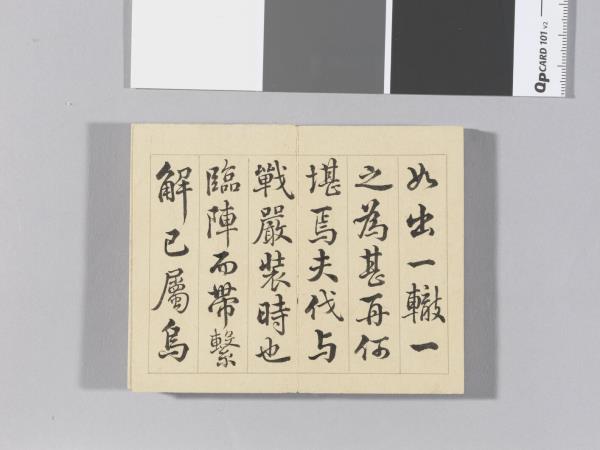 如出一轍一
之為甚再何
堪焉夫伐与
戰嚴裝時也
臨陣而帶繫
解已屬烏
QPCARD 101 v2